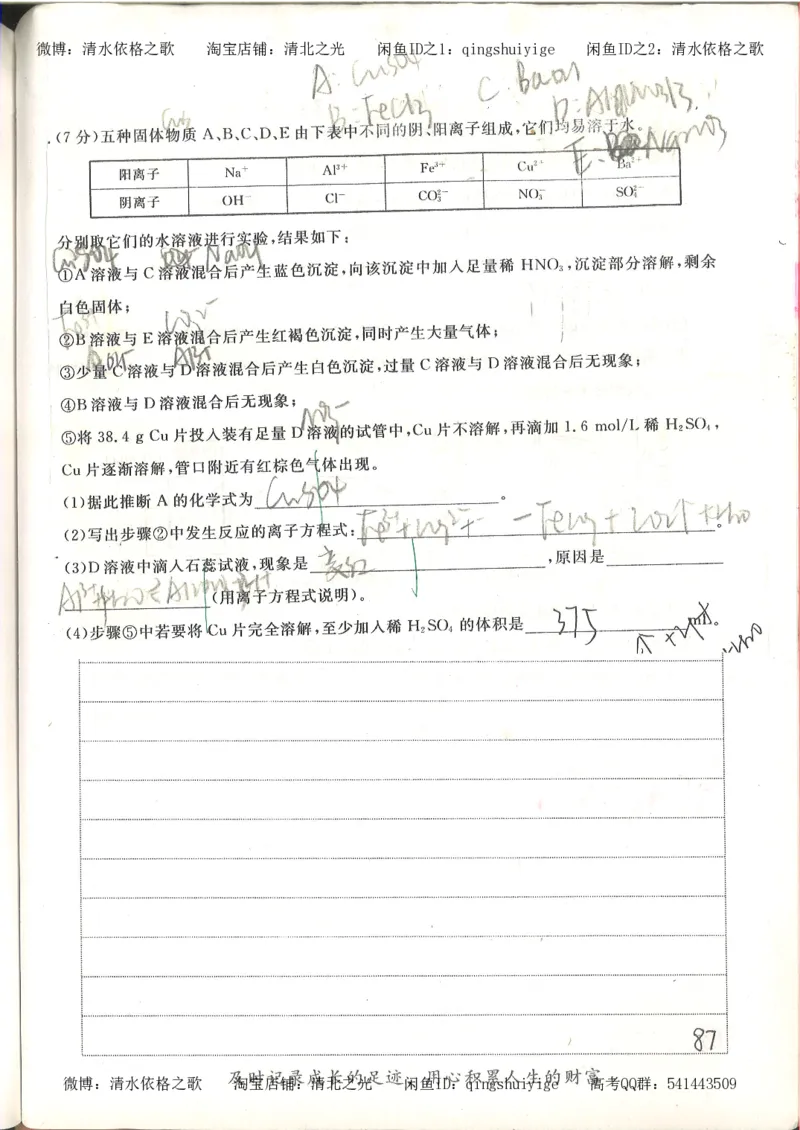 微博：清水依格之歌 淘宝店铺：清北之光 闲鱼ID之1：qingshuiyige 闲鱼ID之2：清水依格之歌
A: CuSO4
C. Ba(OH)
B: FeCl3
D: Al(NO3)3.
E: Na2CO3
(7 分)五种固体物质 A、B、C、D、E 由下表中不同的阴、阳离子组成，它们均易溶于水。
阳离子 Na⁺ Al³⁺ Fe³⁺ Cu²⁺ Ba²⁺
阴离子 OH⁻ Cl⁻ CO₃²⁻ NO₃⁻ SO₄²⁻
分别取它们的水溶液进行实验，结果如下：
CuSO4 NaOH
①A 溶液与 C 溶液混合后产生蓝色沉淀，向该沉淀中加入足量稀 HNO₃，沉淀部分溶解，剩余
白色固体；
CO3²⁻
②B 溶液与 E 溶液混合后产生红褐色沉淀，同时产生大量气体；
③少量 C 溶液与 D 溶液混合后产生白色沉淀，过量 C 溶液与 D 溶液混合后无现象；
④B 溶液与 D 溶液混合后无现象；
NO3⁻
⑤将 38.4 g Cu 片投入装有足量 D 溶液的试管中，Cu 片不溶解，再滴加 1.6 mol/L 稀 H₂SO₄，
Cu 片逐渐溶解，管口附近有红棕色气体出现。
(1)据此推断 A 的化学式为 CuSO4 。
(2)写出步骤②中发生反应的离子方程式： 。
(3)D 溶液中滴入石蕊试液，现象是 变红 ，原因是
(用离子方程式说明)。
(4)步骤⑤中若要将 Cu 片完全溶解，至少加入稀 H₂SO₄ 的体积是 375 ml 。
87
及时记录成长的足迹 用心积累人生的财富
微博：清水依格之歌 淘宝店铺：清北之光 闲鱼ID之1：qingshuiyige 高考QQ群：541443509